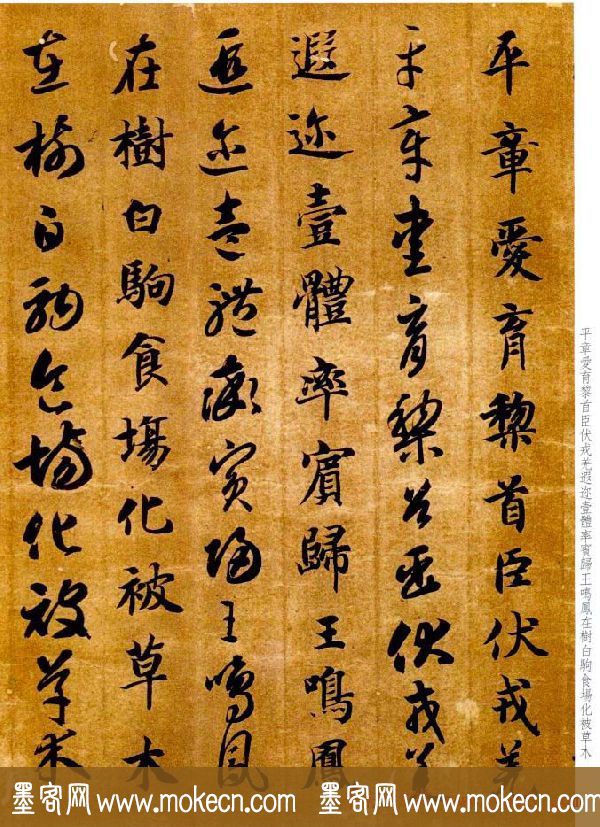 平章愛育黎首臣伏戎羌遐迩壹體率賓歸王鳴鳳在樹白駒食場化被草木
平章愛育黎首臣伏戎羌
平章愛育黎首臣伏戎羌
遐迩壹體率賓歸王鳴鳳
遐迩壹體率賓歸王鳴鳳
在樹白駒食塲化被草木
在樹白駒食場化被草木
墨客网 www.mokecn.com 墨客网 www.mokecn.com